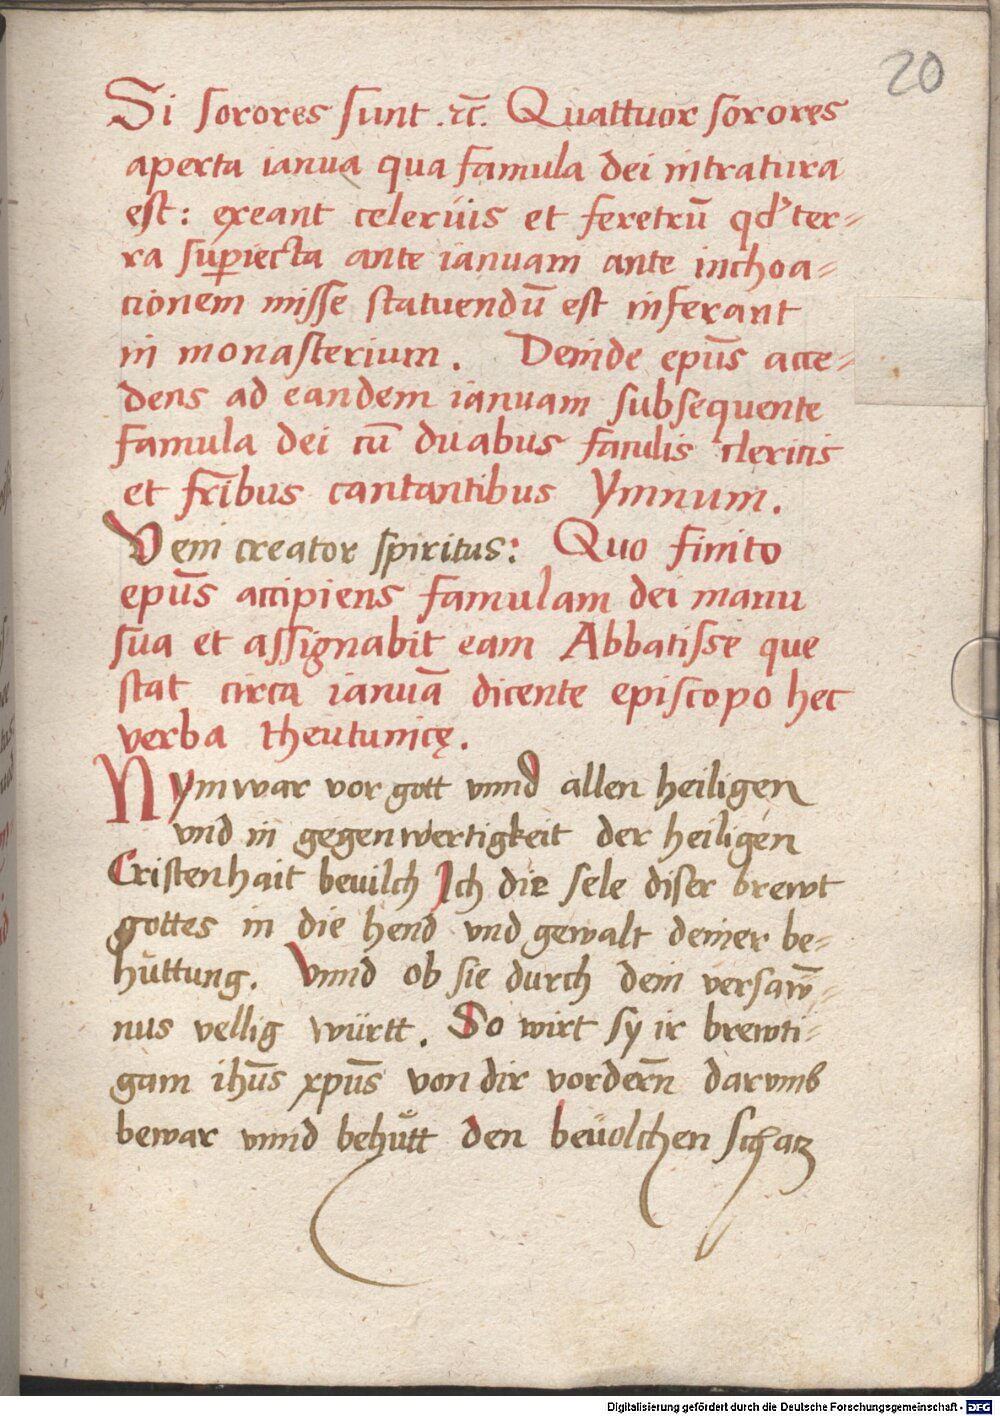 20
Si sorores sunt .rc̄. Quattuor sorores
aperta ianua qua famula dei intratura
est: exeant celerüis et feretrū qd' ter=
ra supiecta ante ianuam ante inchoa=
cionem misse statuendū est inferant
in monasterium. Deinde epūs acce=
dens ad eandem ianuam subsequente
famula dei cū duabus faculis clericis
et fr̄ibus cantantibus Ymnum.
Veni creator spiritus: Quo finito
epūs accipiens famulam dei manu
sua et assignabit eam Abbatisse que
stat circa ianuā dicente episcopo hec
verba theutunicę.
Nym war vor gott vnnd allen heiligen
vnd in gegenwertigkeit der heiligen
Cristenhait beuilch Ich die sele diser brewt
gottes in die hend vnd gewalt deiner be=
hüttung. Vnnd ob sie durch dein versaw̄=
nus vellig württ. So wirt sy ir brewti=
gam ihūs xpūs von dir vordern̄ darvmb
bewar vnnd behütt den beüolchen schatz
Digitalisierung gefördert durch die Deutsche Forschungsgemeinschaft - DFG